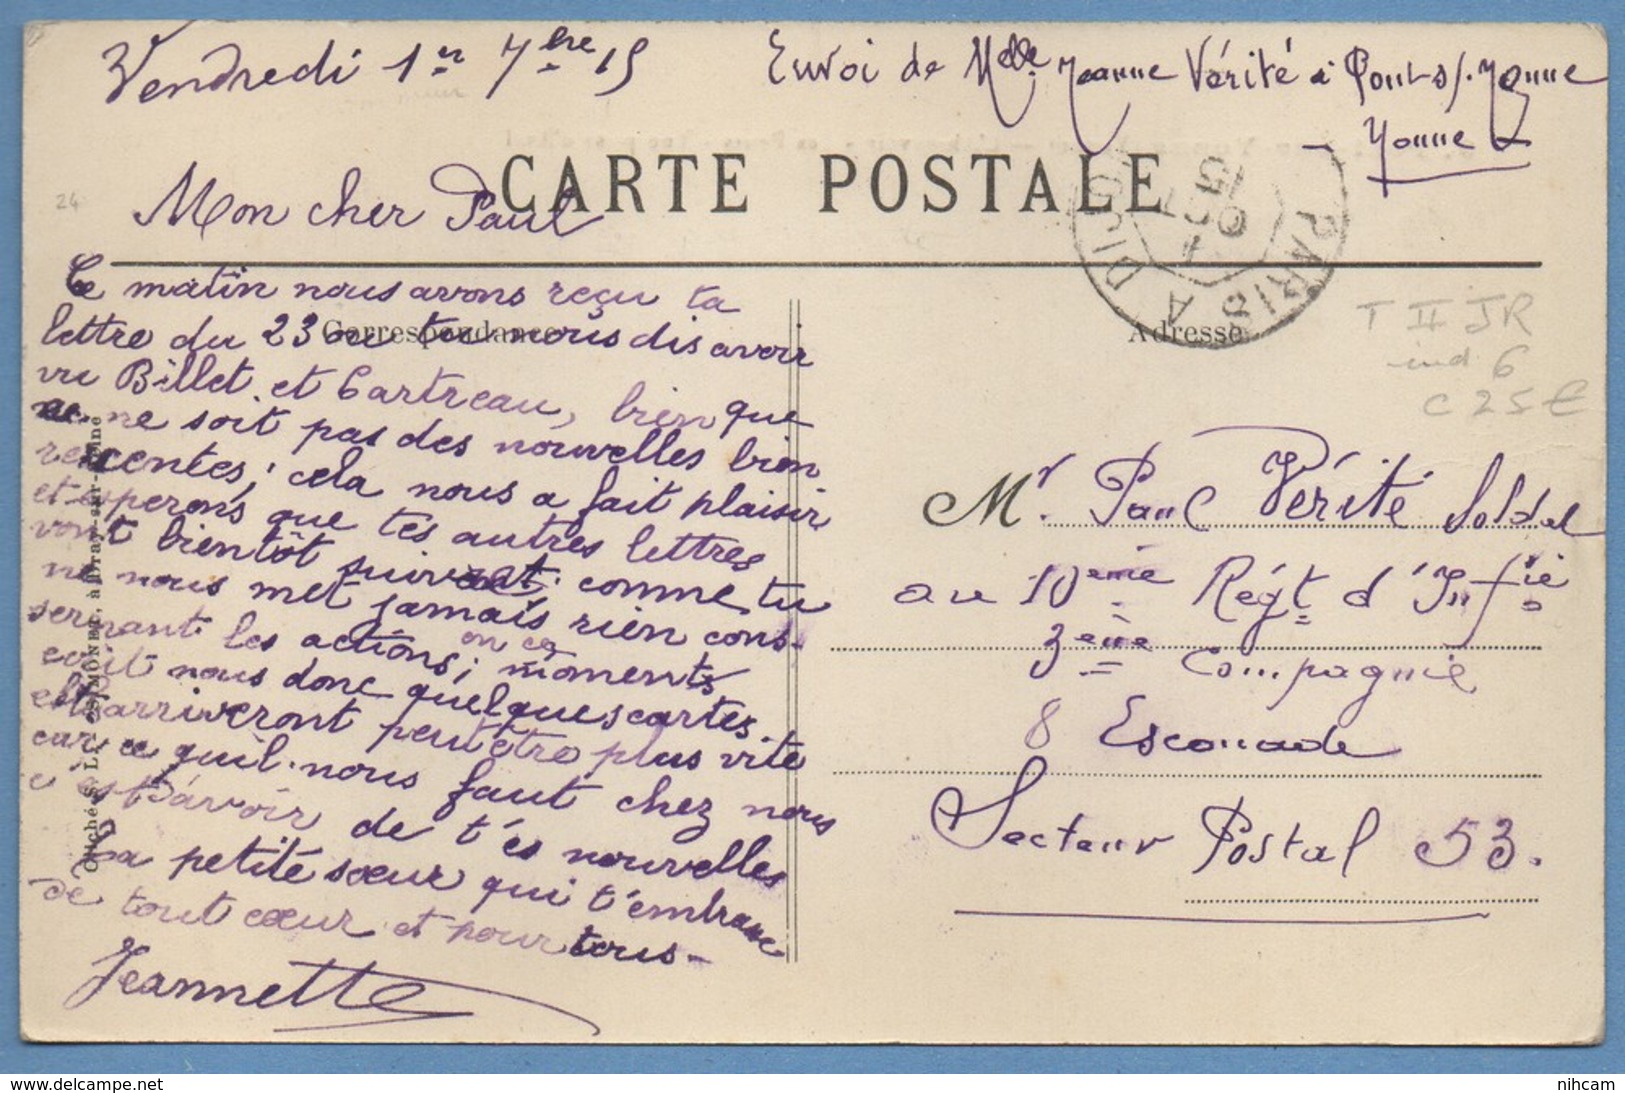 Vendredi 1er 7bre 15
Envoi de Melle Jeanne Vérité à Pont-s/-Yonne
Yonne
CARTE POSTALE
24
Mon cher Paul
PARIS A DIJON
1
OCT
15
Correspondance
Adresse
T II JR
ind 6
C 25 €
Ce matin nous avons reçu ta
lettre du 23 ou tu nous dis avoir
vu Billet et Cartreau, bien que
ce ne soit pas des nouvelles bien
récentes; cela nous a fait plaisir
et espérons que tes autres lettres
vont bientôt suivre comme tu
ne nous met jamais rien cons-
sernant les actions; en ces moments
ecrit nous donc quelques cartes.
elles arriveront peut être plus vite
car ce qu'il nous faut chez nous
c'est d'avoir de t'es nouvelles
La petite sœur qui t'embrasse
de tout cœur et pour tous-
Jeannette
Mr. Paul Vérité Soldat
au 10ème Régt d'Infie
3ème Compagnie
8 Escouade
Secteur Postal 53.
nihcam